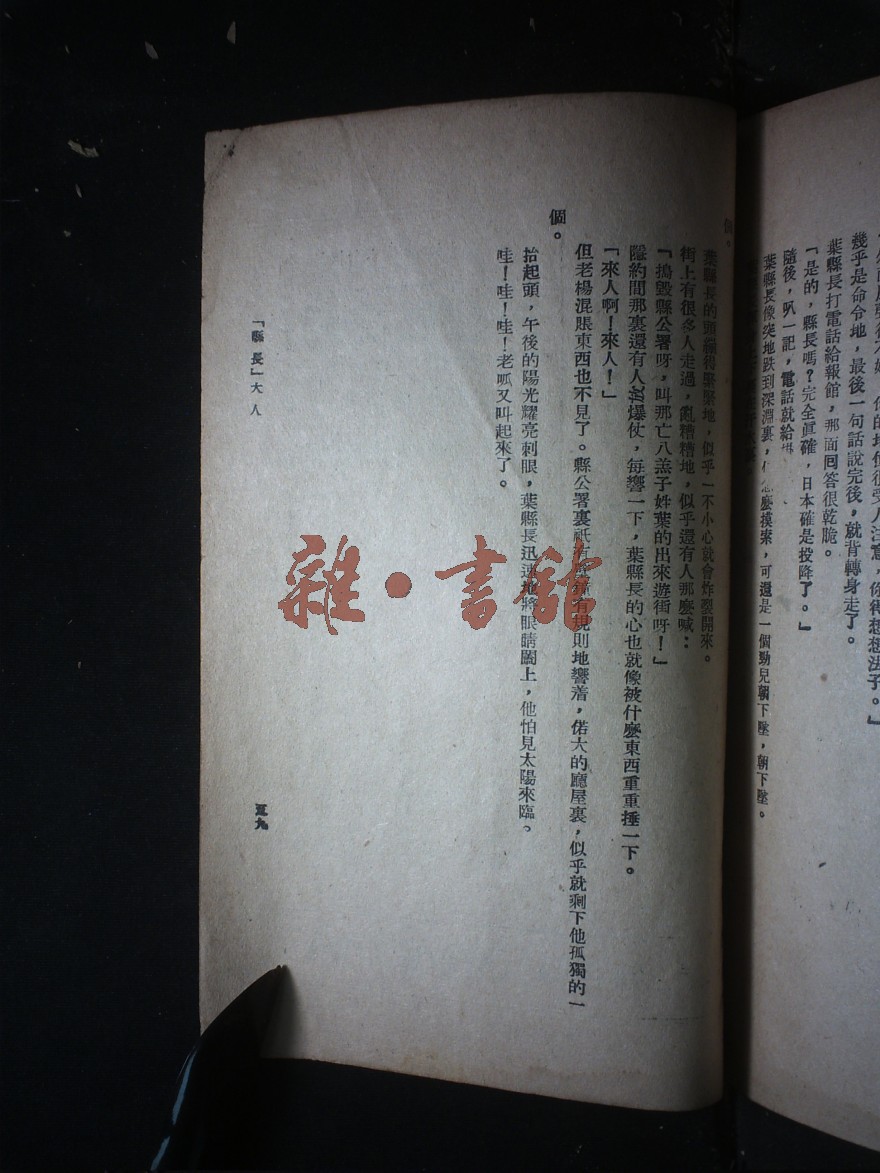 得想想法子。」
幾乎是命令地，最後一句話說完後，就背轉身走了。
葉縣長打電話給報館，那面回答很乾脆。
「是的，縣長嗎？完全眞確，日本確是投降了。」
隨後，叭一記，電話就給
葉縣長像突地跌到深淵裏，麼摸索，可還是一個勁兒朝下墜，朝下墜。
個。
葉縣長的頭繃得緊緊地，似乎一不小心就會炸裂開來。
街上有很多人走過，亂糟糟地，似乎還有人那麼喊：
「搗毀縣公署呀，叫那亡八羔子姓葉的出來遊街呀！」
隱約間那裏還有人放爆仗，每響一下，葉縣長的心也就像被什麼東西重重捶一下。
「來人啊！來人！」
但老楊混賬東西也不見了。縣公署裏祇有壁鐘有規則地響着，偌大的廳屋裏，似乎就剩下他孤獨的一
個。
抬起頭，午後的陽光耀亮刺眼，葉縣長迅速地將眼睛闔上，他怕見太陽來臨。
哇！哇！哇！老呱又叫起來了。
「縣長」大人
五九
雜·書館